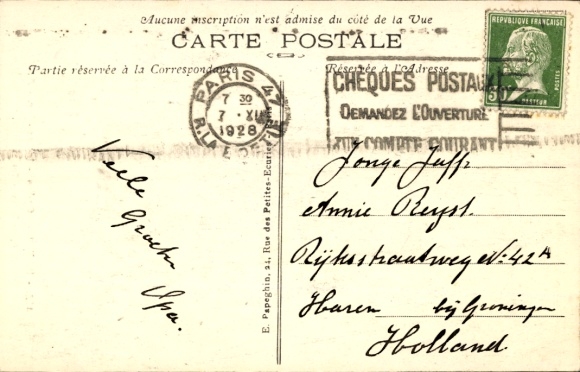 Aucune inscription n'est admise du côté de la Vue
CARTE POSTALE
Partie réservée à la Correspondance
Réservée à l'Adresse
PARIS 47
7 30
7 · XII
1928
R. LA
CHEQUES POSTAUX
DEMANDEZ L'OUVERTURE
COMPTE COURANT
REPUBLIQUE FRANÇAISE
POSTES
PASTEUR
Veele
Groeten
Opa.
E. Papeghin, 24, Rue des Petites-Ecuries
Jonge Juffr
Annie Reyst.
Rijksstraatweg No 42A
Haren bij Groningen
Holland